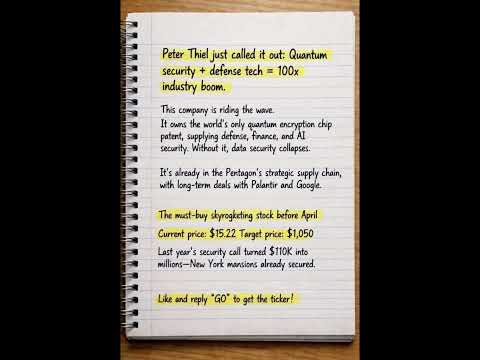 Peter Thiel just called it out: Quantum
security + defense tech = 100x
industry boom.
This company is riding the wave.
It owns the world's only quantum encryption chip
patent, supplying defense, finance, and AI
security. Without it, data security collapses.
It's already in the Pentagon's strategic supply chain,
with long-term deals with Palantir and Google.
The must-buy skyrogketing stock before April
Current price: $15.22 Target price: $1,050
Last year's security call turned $110K into
millions—New York mansions already secured.
Like and reply "GO" to get the ticker!